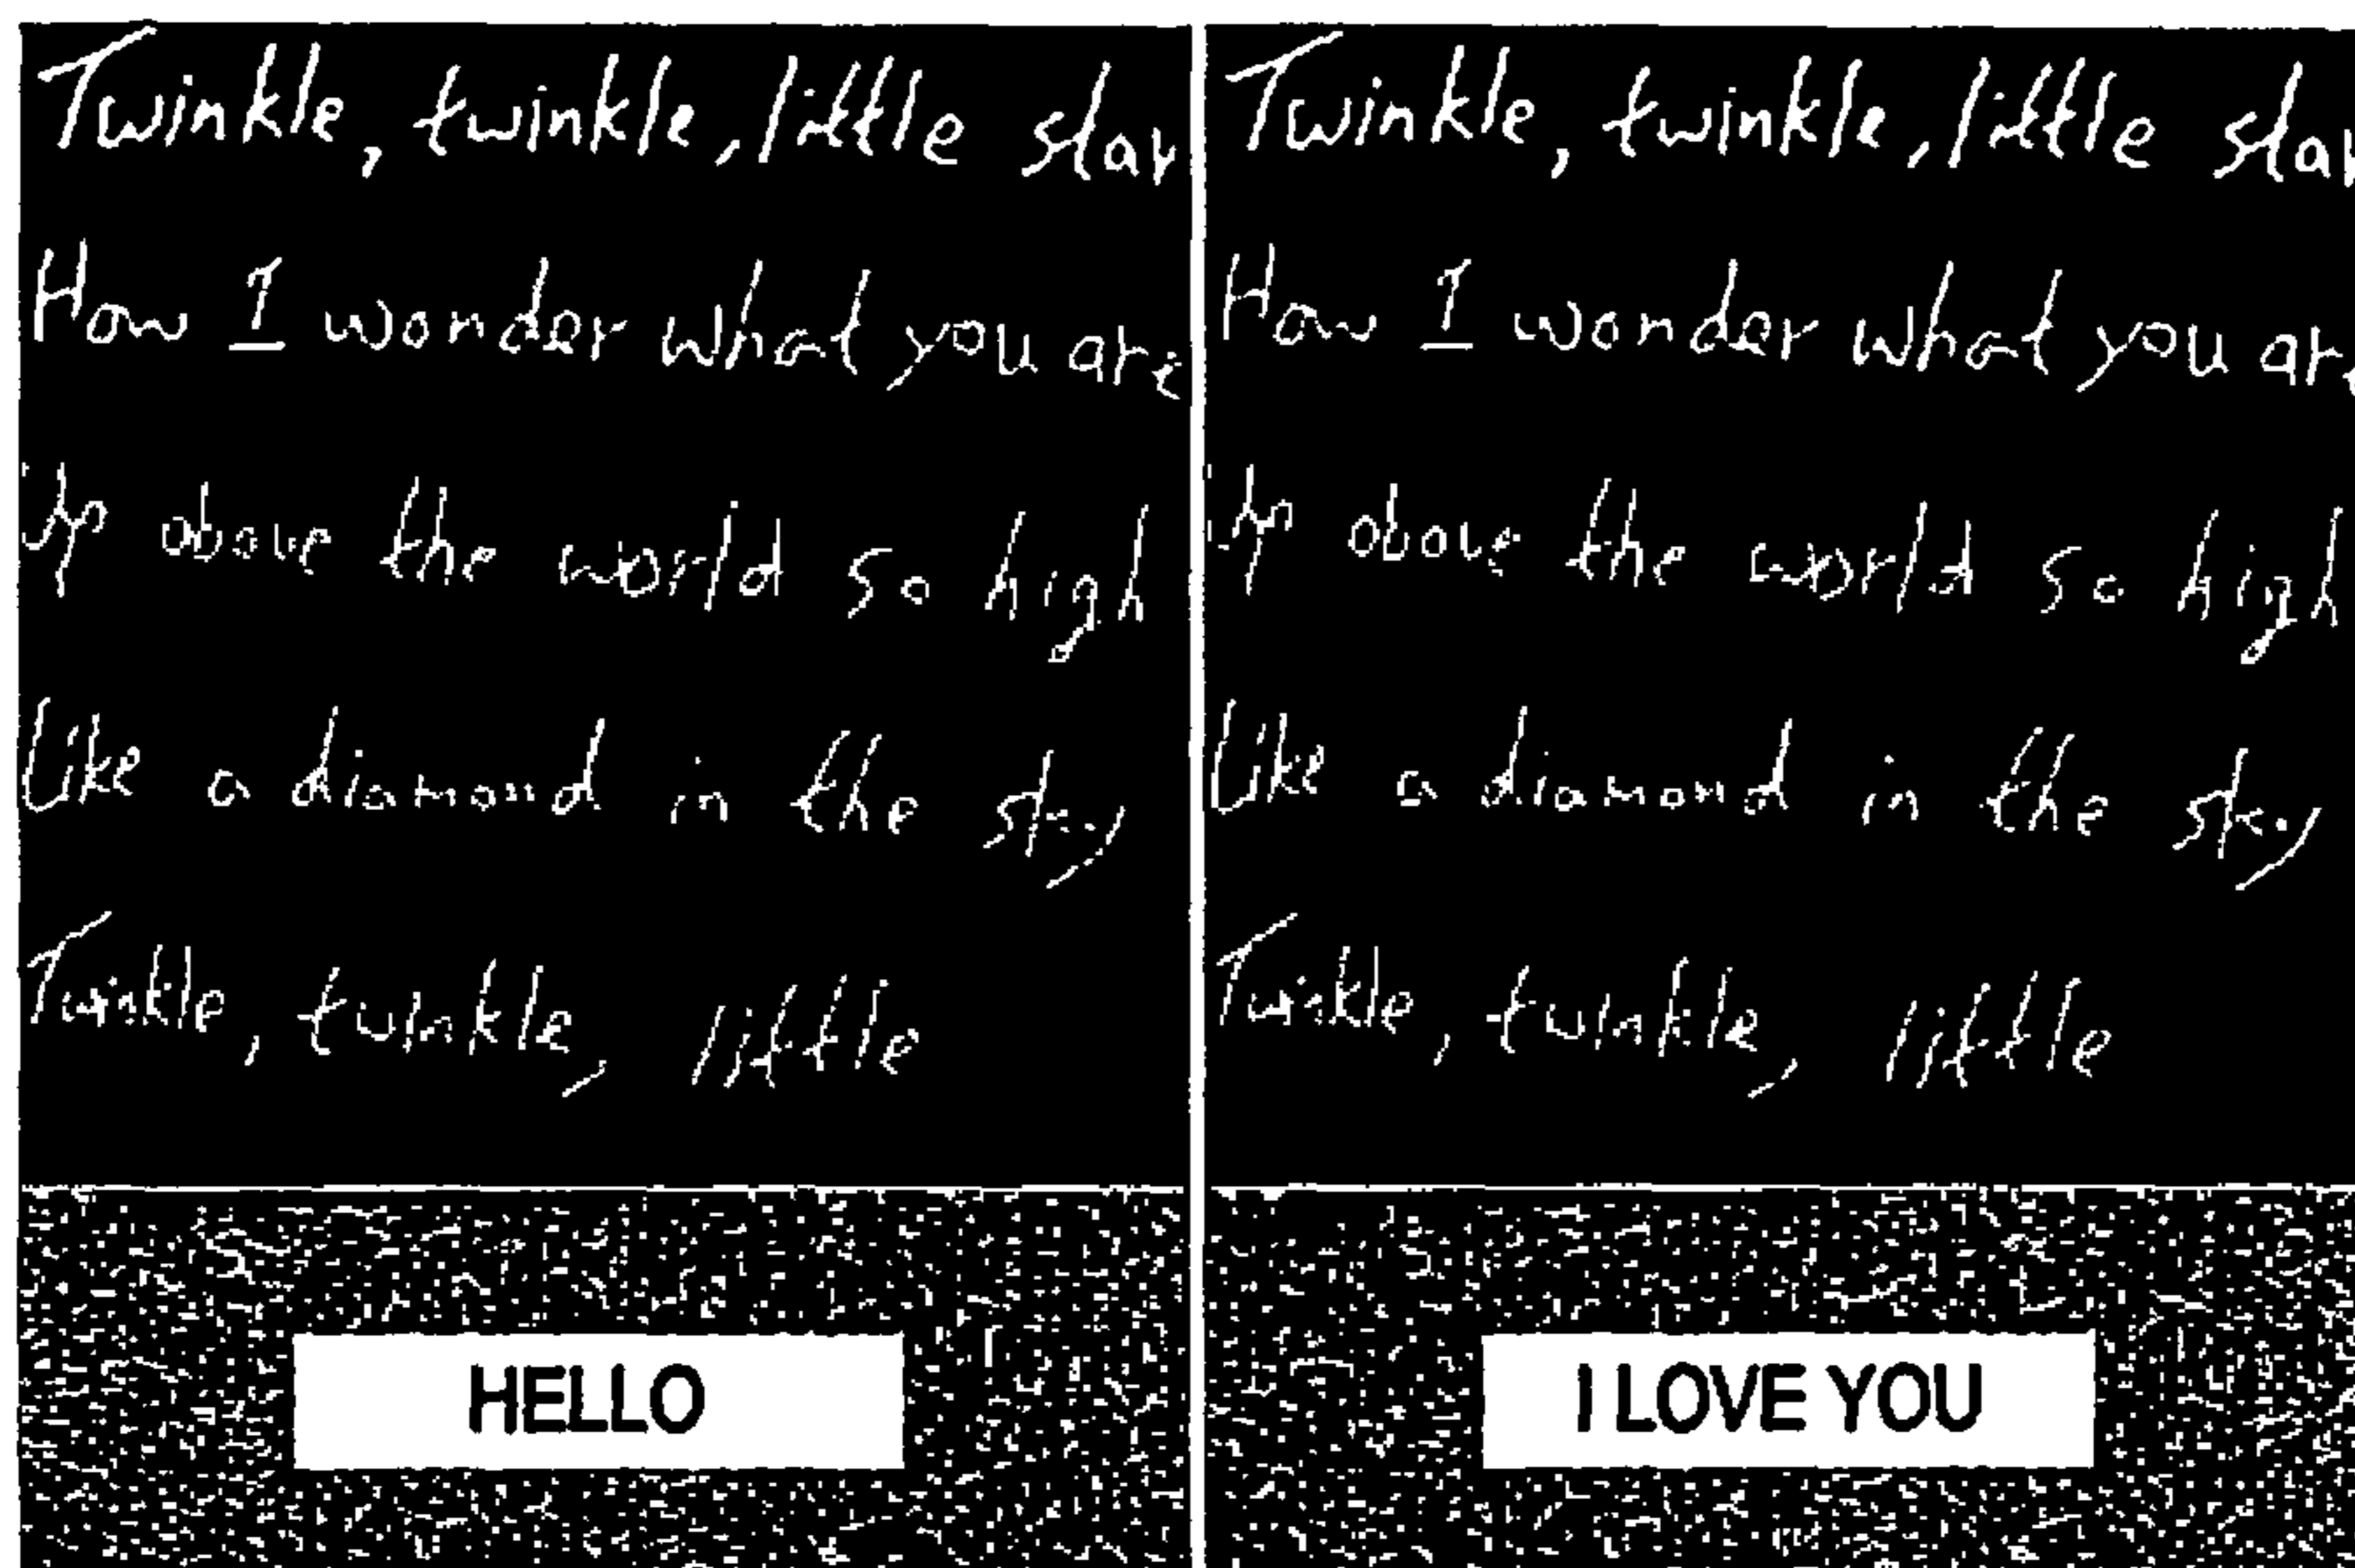 Twinkle, twinkle, little star
How I wonder what you are
Up above the world so high
Like a diamond in the sky
Twinkle, twinkle, little
HELLO
Twinkle, twinkle, little star
How I wonder what you are
Up above the world so high
Like a diamond in the sky
Twinkle, twinkle, little
I LOVE YOU